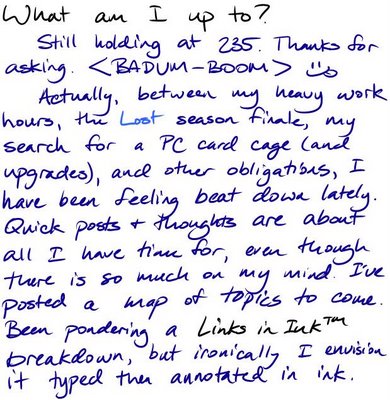 What am I up to?
Still holding at 235. Thanks for
asking. <BADUM-BOOM> :)
Actually, between my heavy work
hours, the Lost season finale, my
search for a PC card cage (and
upgrades), and other obligations, I
have been feeling beat down lately.
Quick posts + thoughts are about
all I have time for, even though
there is so much on my mind. I've
posted a map of topics to come.
Been pondering a Links in Ink™
breakdown, but ironically I envision
it typed then annotated in ink.